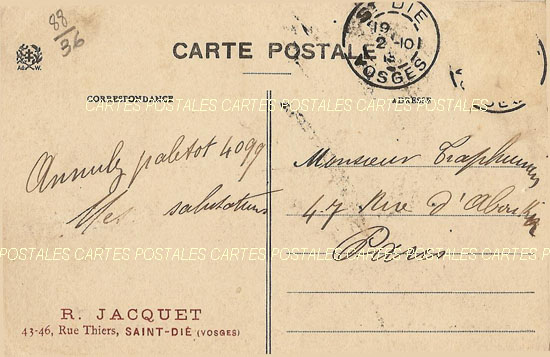 88/36
CARTE POSTALE
ST DIÉ
19
2-10
13
VOSGES
CORRESPONDANCE
ADRESSE
CARTES POSTALES CARTES POSTALES CARTES POSTALES CARTES POSTALES
Annulez paletot 4099
Mes salutations
Monsieur
47 Rue d'Aboukir
Paris
POSTALES CARTES POSTALES CARTES POSTALES CARTES POSTALES CARTES
R. JACQUET
43-46, Rue Thiers, SAINT-DIÉ (VOSGES)